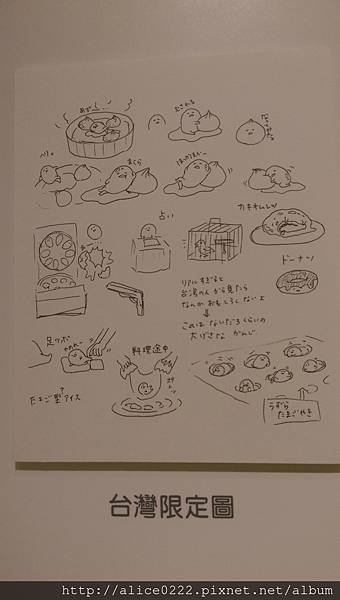 あつ…
むさんる
ぺり。
まくら
占い
カキオムレツ
ドーナツ
リアルすぎると
台湾の人から見たら
なんかおもしろくないよ
これはないだろくらいの
大げさな かんじ。
足ツボ
やめてー
料理途中
たまご型アイス
うずら
たまごやき
台灣限定圖
http://alice0222.pixnet.net/album